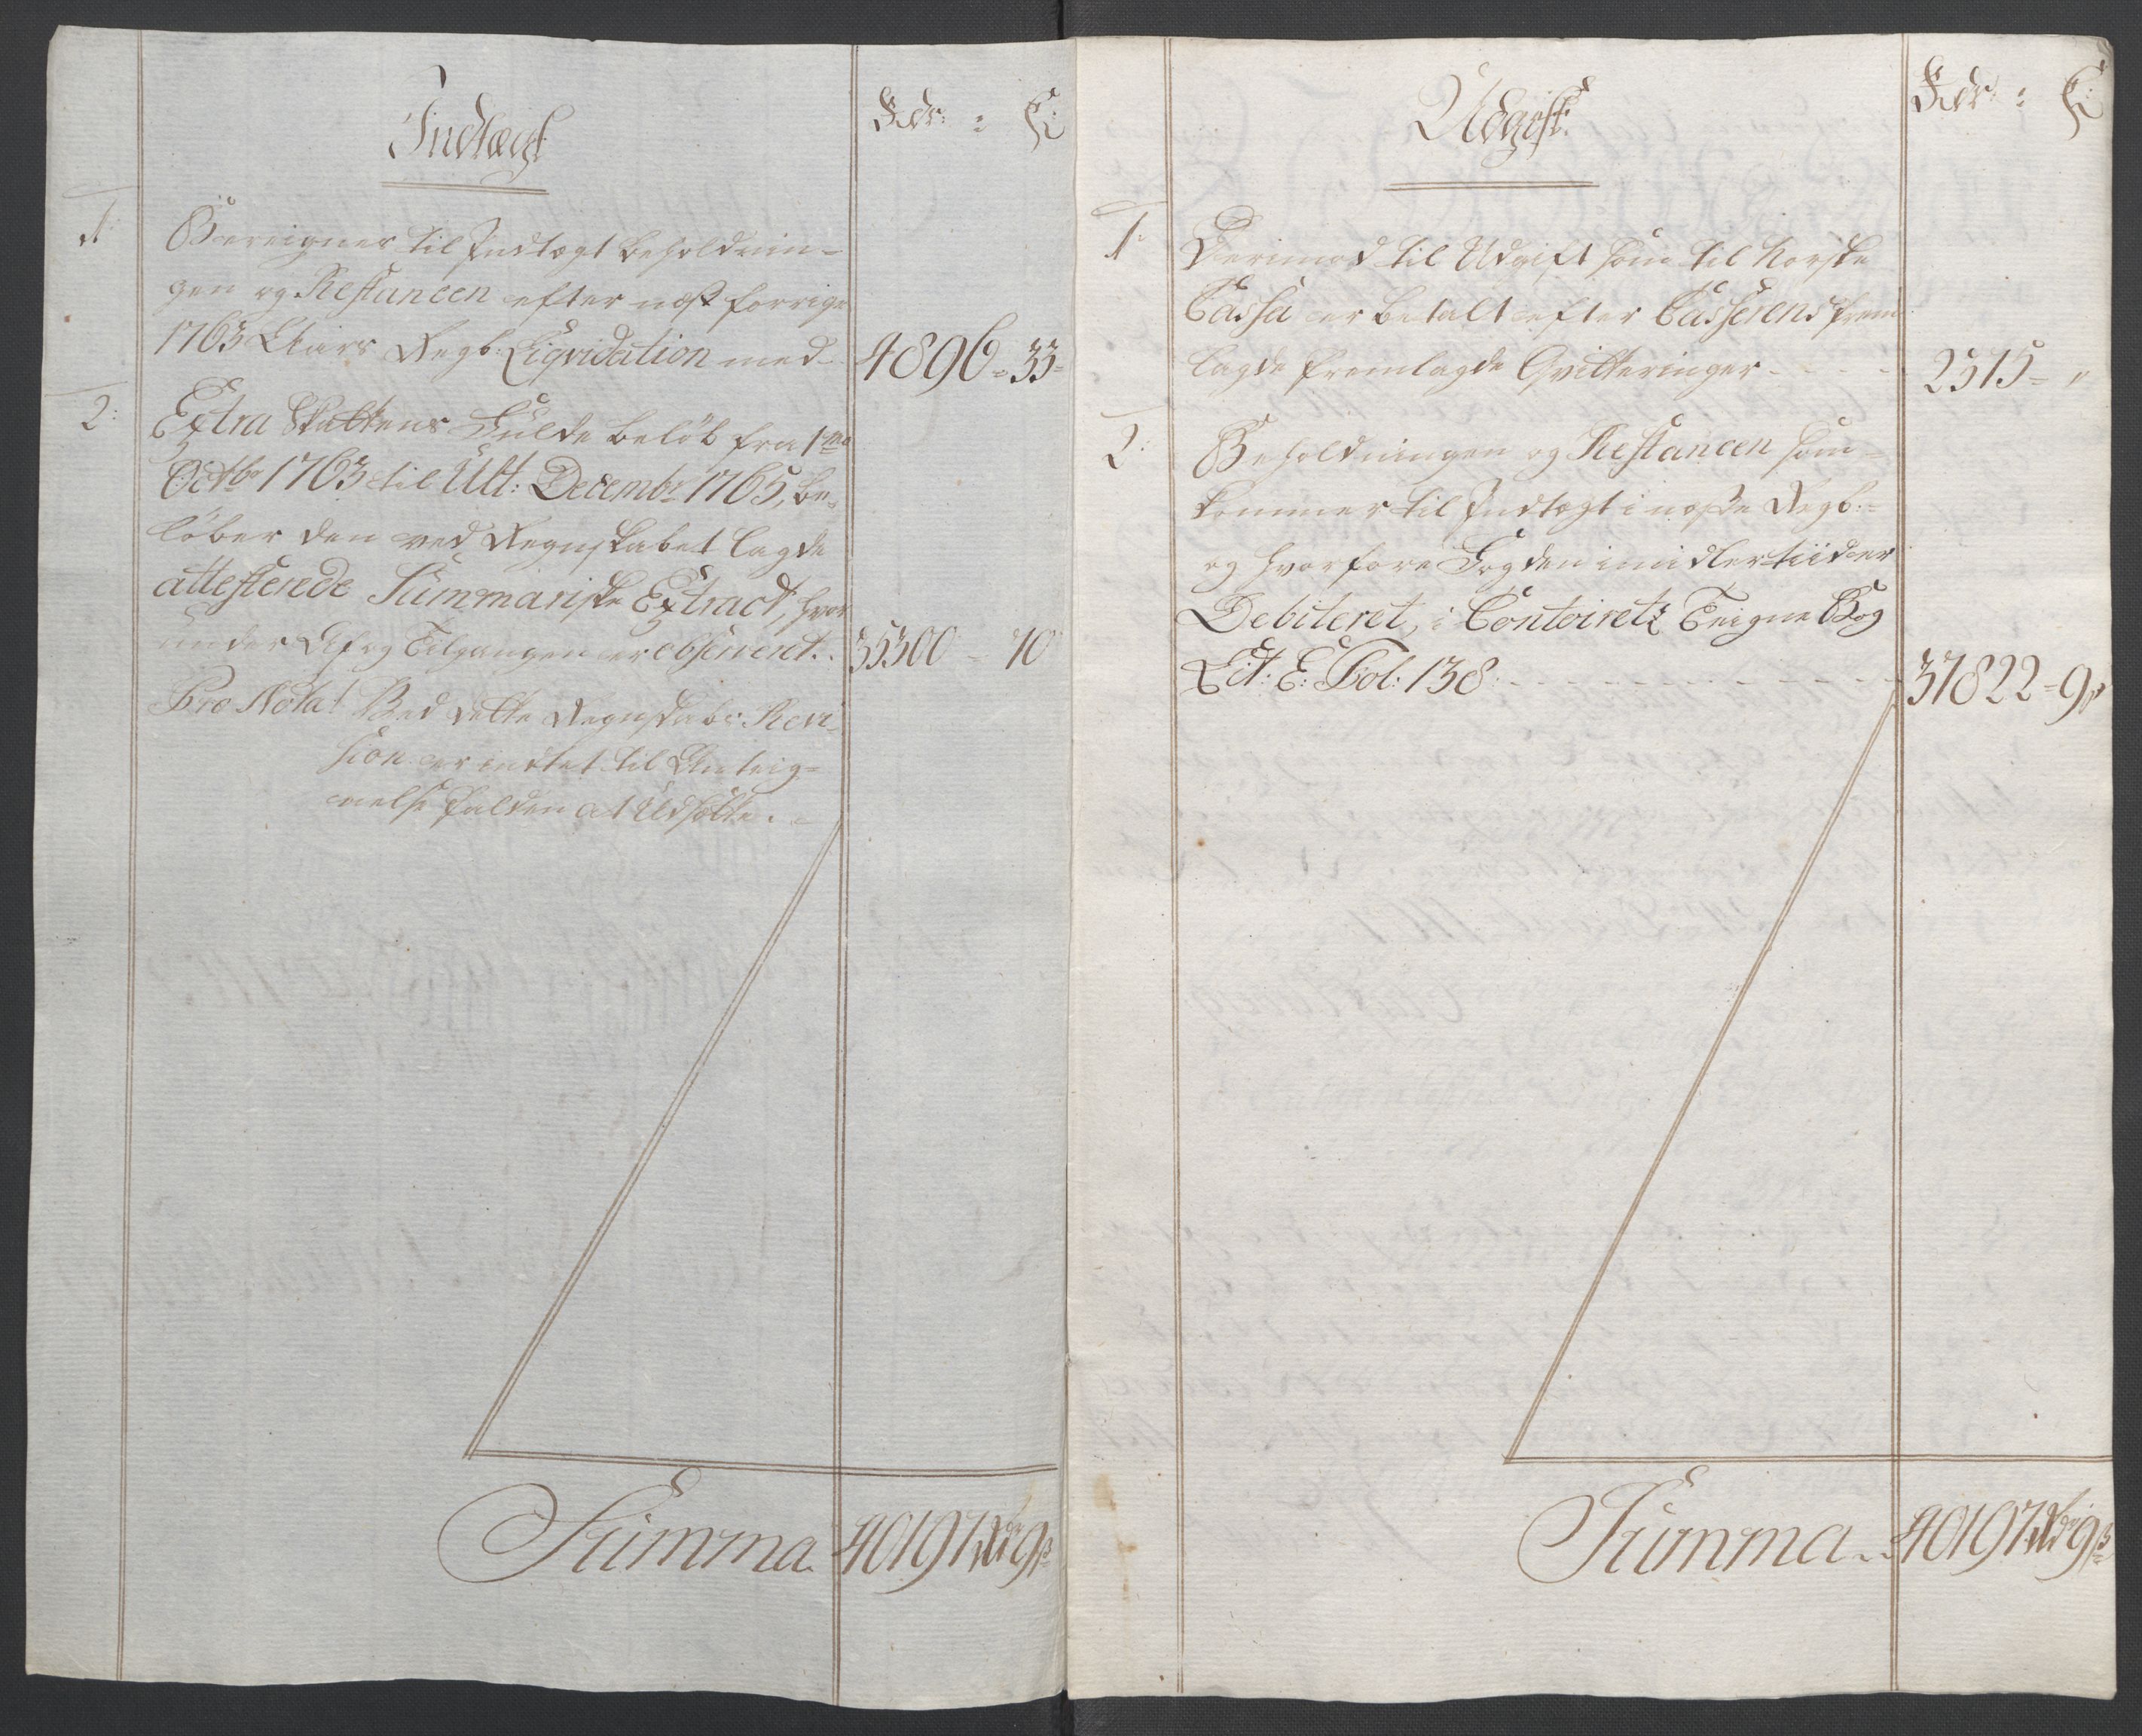 Indtægt
Rdr: ß:
1: Bereignes til Indtægt beholdnin-
gen og Restancen efter næst forrige
1763 Aars Regb: Liqvidation med- 4896 - 33-
2: Extra Skattens Fulde beløb fra 1mo
Octbr 1763 til Ult: Decembr 1765, be-
løber den ved Regnskabet lagde
attesterede Summariske Extract, hvor
under Af og Tilgangen er observeret. 35300 - 70
Pro Nota! Ved dette Regnskabs Revi-
sion er intet til Anteig-
nelse falden at Udsætte.
Summa 40197 Rdr 9 ß
Udgift:
Rdr: ß:
1: Derimod til Udgift som til Norske
Cassa er betalt efter Casserens frem
lagde fremlagde Qvitteringer - - - - 2515 - "
2: Beholdningen og Restancen som-
kommer til Indtægt i næste Regb:
og hvorfore Fogden imidlertiid er
Debiteret, i Contoirets Teigne Bog
Lit: E: Fol: 138: - - - - - - 37822 - 9 ß
Summa 40197 Rdr 9 ß